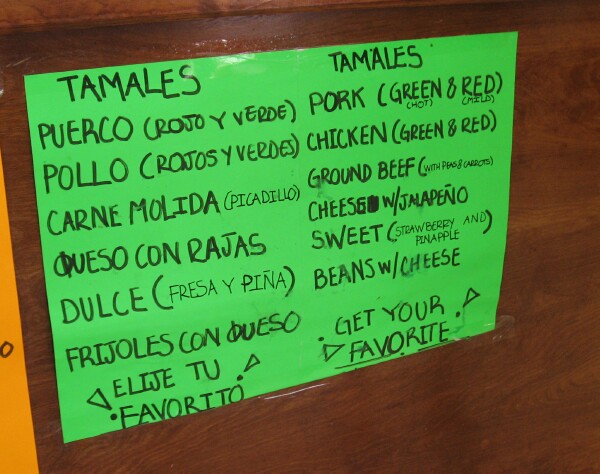 TAMALES
PUERCO (ROJO Y VERDE)
POLLO (ROJOS Y VERDES)
CARNE MOLIDA (PICADILLO)
QUESO CON RAJAS
DULCE (FRESA Y PIÑA)
FRIJOLES CON QUESO
ELIJE TU
FAVORITO
TAMALES
PORK (GREEN & RED)
(HOT) (MILD)
CHICKEN (GREEN & RED)
GROUND BEEF (WITH PEAS & CARROTS)
CHEESE W/JALAPEÑO
SWEET (STRAWBERRY AND
PINAPPLE)
BEANS W/CHEESE
GET YOUR
FAVORITE